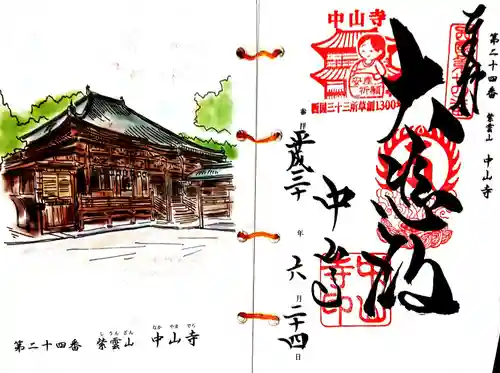 第二十四番 紫雲山 中山寺
しうんざん なかやまでら
中山寺
安産
祈願
西国三十三所草創1300年
第二十四番 紫雲山 中山寺
奉拝
大悲殿
中山寺
平成三十年六月二十四日